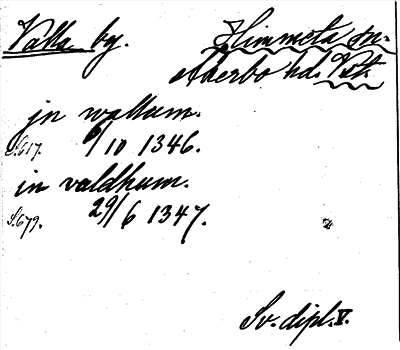 Valla by. Himmeta sn.
Åkerbo hd. Vstm.
jn wallum.
S. 617. 6/10 1346.
in valdhum.
S. 679. 29/6 1347.
Sv. dipl. V.